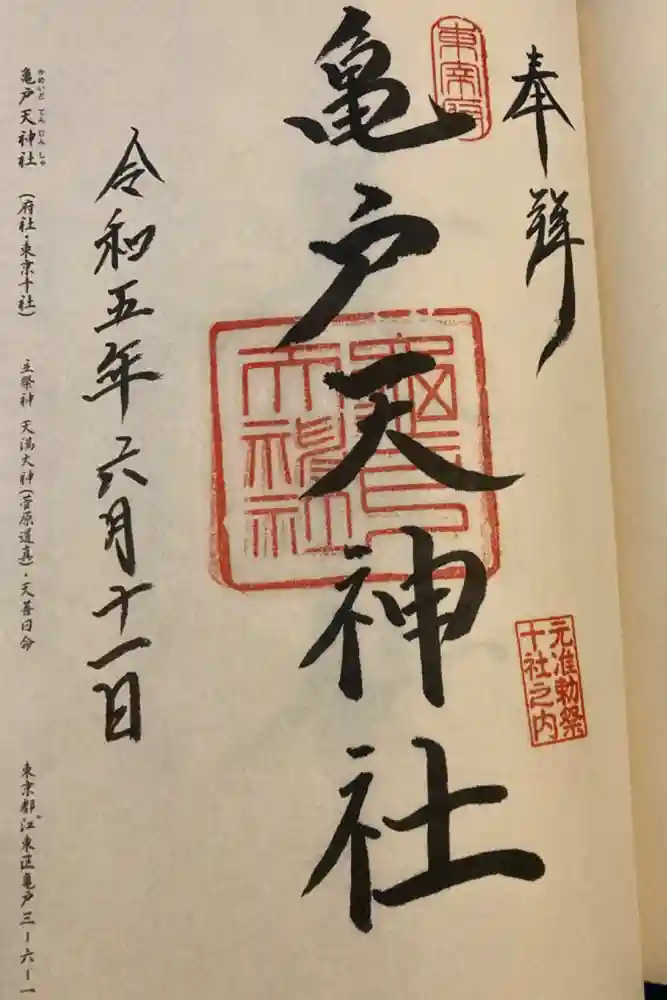 奉拝
東宰府
亀戸天神社
亀戸天神社
元准勅祭
十社之内
令和五年六月十一日
かめいど てんじんしゃ
亀戸天神社 (府社・東京十社) 主祭神 天満大神(菅原道真)・天菩日命 東京都江東区亀戸三ー六ー一